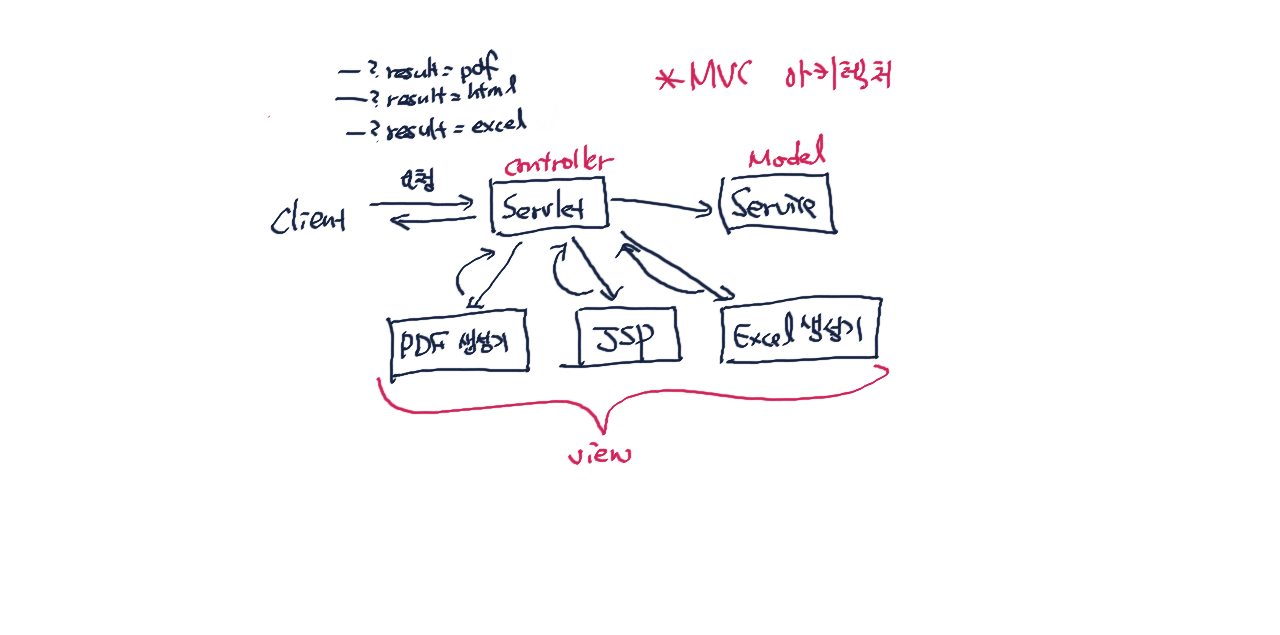 — ? result = pdf
— ? result = html
— ? result = excel
* MVC 아키텍처
요청
Controller
Model
Client
Servlet
Service
PDF 생성기
JSP
Excel 생성기
view